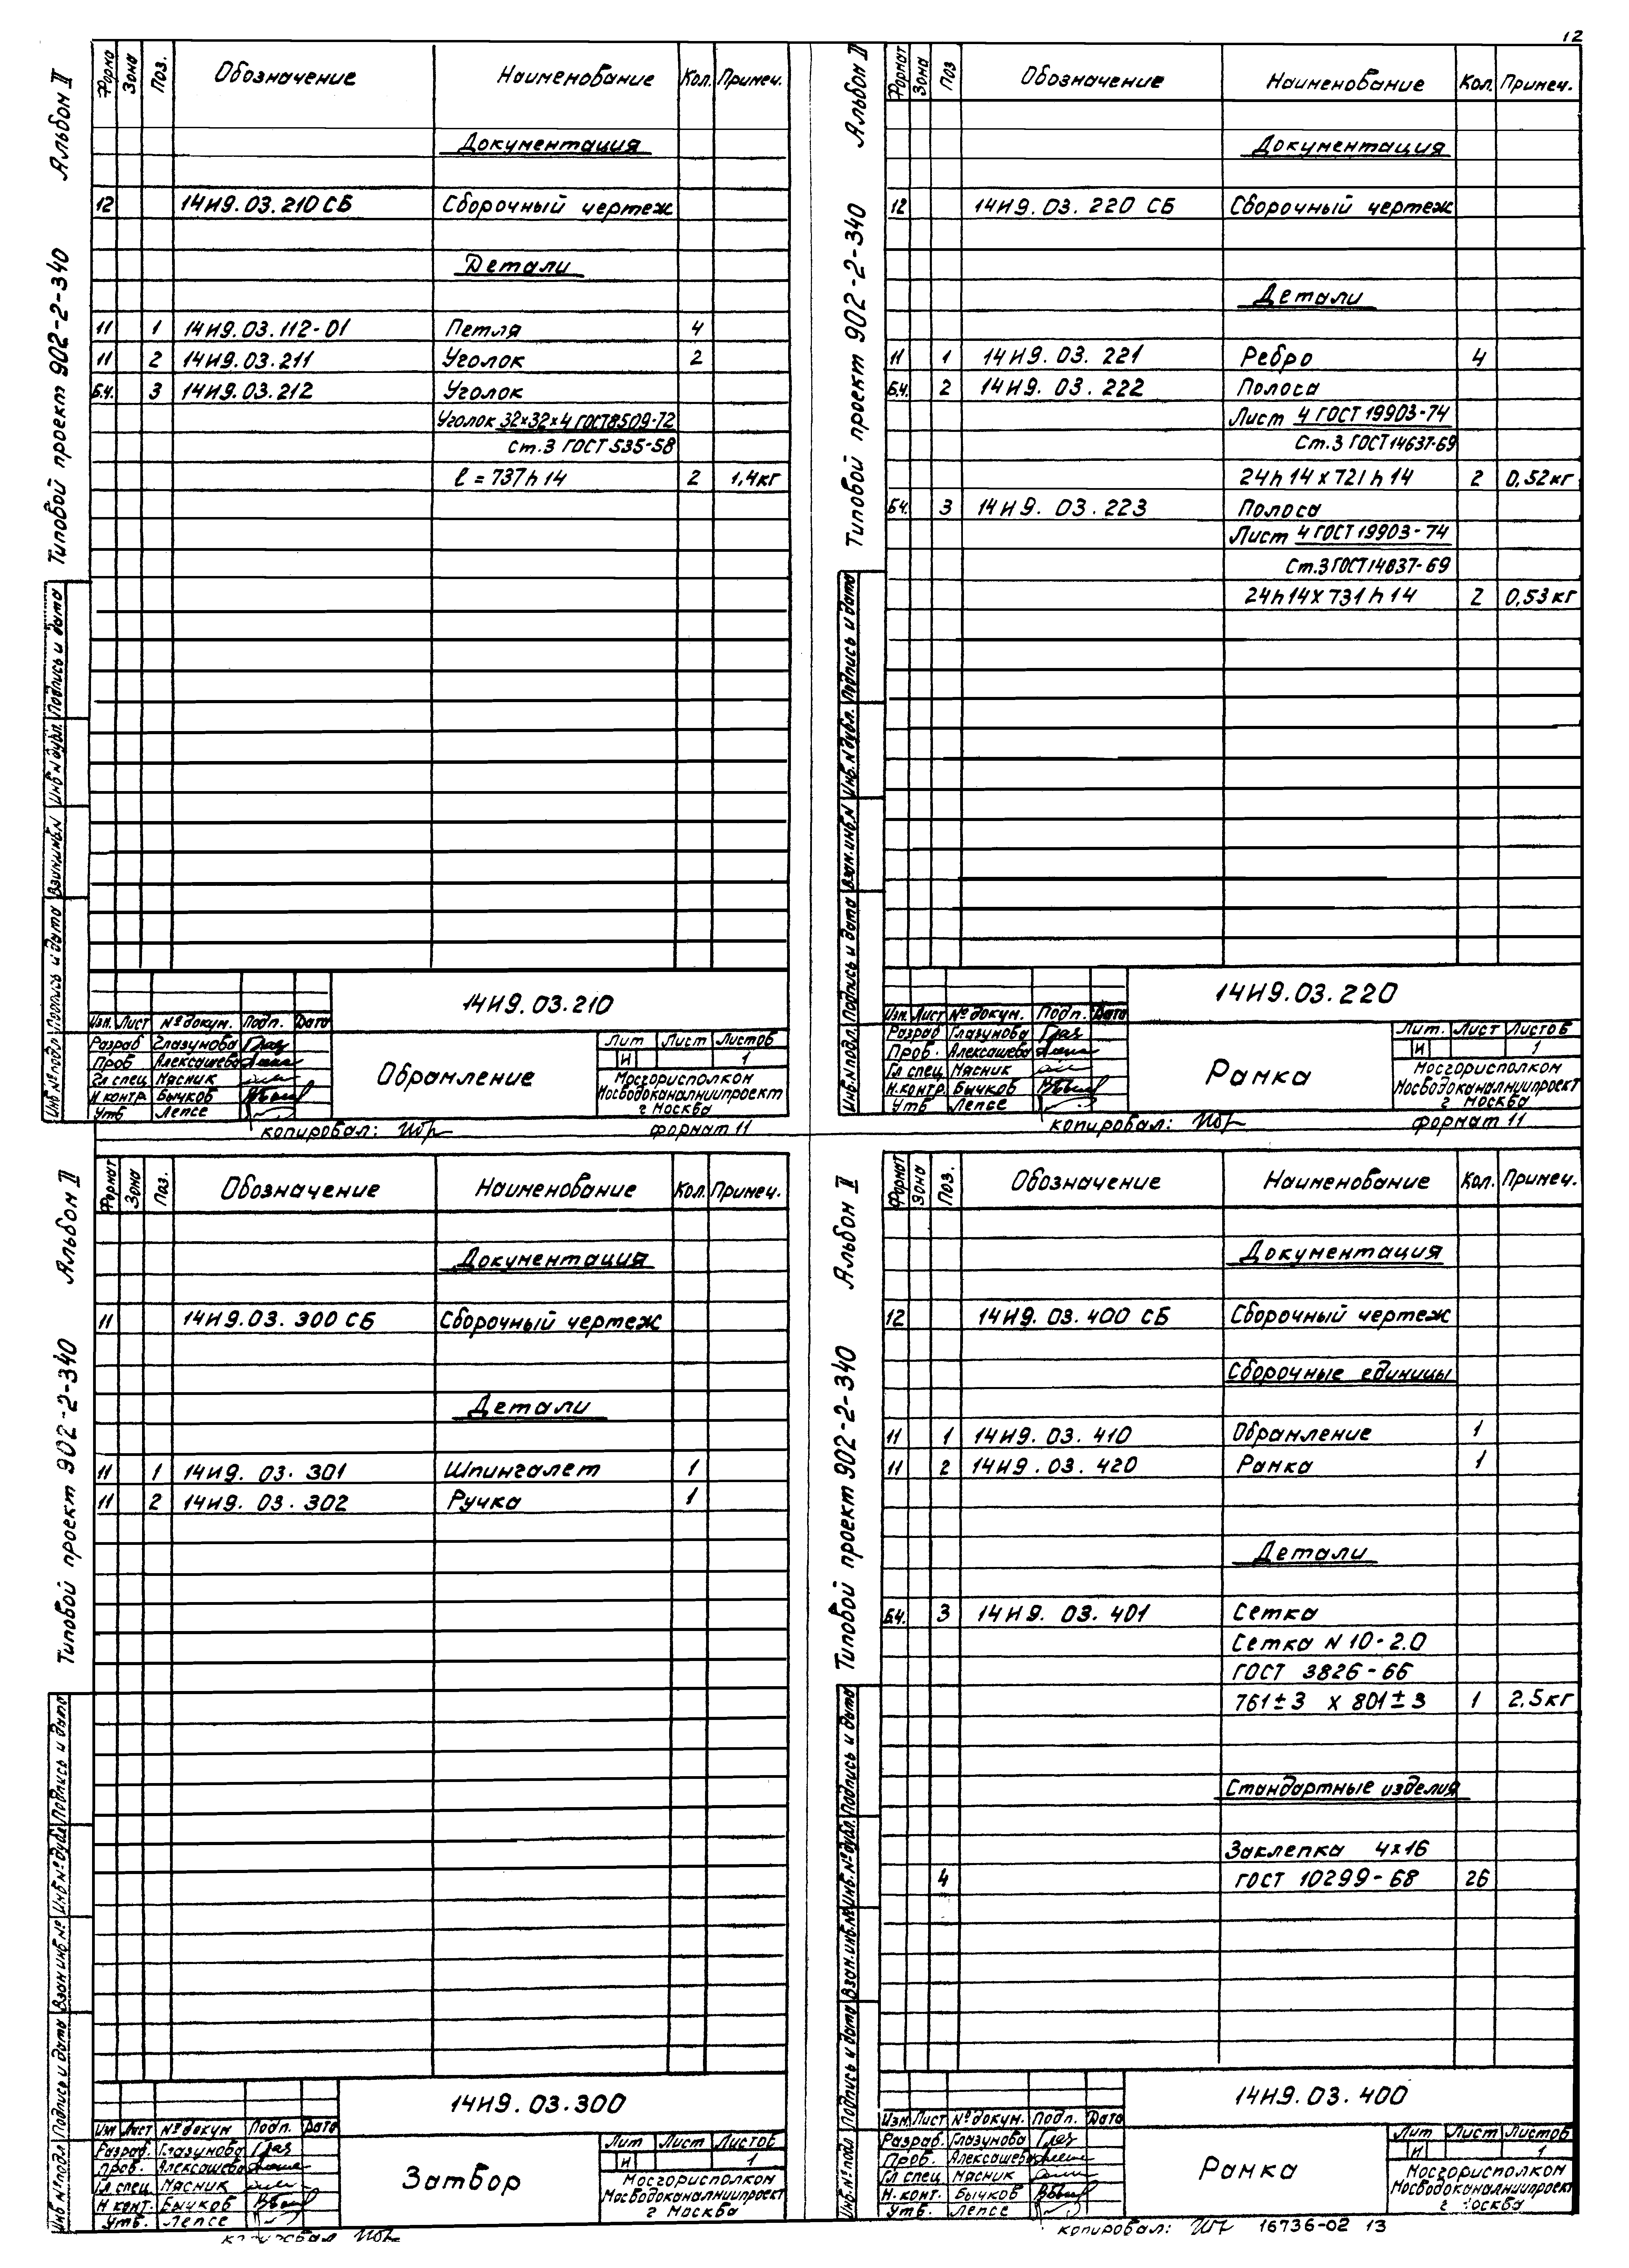 12
Альбом II
Типовой проект 902-2-340
Форма Зона Поз. Обозначение Наименование Кол. Примеч.
Документация
12 14И9.03.210 СБ Сборочный чертеж
Детали
11 1 14И9.03.112-01 Петля 4
11 2 14И9.03.211 Уголок 2
Б.Ч. 3 14И9.03.212 Уголок
Уголок 32х32х4 ГОСТ8509-72
Ст.3 ГОСТ 535-58
l = 737h14 2 1,4кг
Инв №подл Подпись и дата Взам.инв.N Инв N дубл. Подпись и дата
14И9.03.210
Изм. Лист №докум. Подп. Дата
Разраб Глазунова
Пров Алексашева
Гл спец Мясник
Н контр Бычков
Утв Лепсе
Обрамление
Лит Лист Листов
И 1
Мосгорисполком
Мосводоканалниипроект
г Москва
копировал: формат 11
Альбом II
Типовой проект 902-2-340
Формат Зона Поз Обозначение Наименование Кол. Примеч.
Документация
12 14И9.03.220 СБ Сборочный чертеж
Детали
11 1 14И9.03.221 Ребро 4
Б.Ч. 2 14И9.03.222 Полоса
Лист 4 ГОСТ 19903-74
Ст.3 ГОСТ14637-69
24h14 х 721h14 2 0,52кг
Б.Ч. 3 14И9.03.223 Полоса
Лист 4 ГОСТ 19903-74
Ст.3 ГОСТ14637-69
24h14 х 731h14 2 0,53кг
Инв.N подл. Подпись и дата Взам.инв.N Инв.N дубл. Подпись и дата
14И9.03.220
Изм. Лист № докум. Подп. Дата
Разраб Глазунова
Пров. Алексашева
Гл спец Мясник
Н.контр. Бычков
Утв Лепсе
Рамка
Лит. Лист Листов
И 1
Мосгорисполком
Мосводоканалниипроект
г Москва
копировал: формат 11
Альбом II
Типовой проект 902-2-340
Формат Зона Поз. Обозначение Наименование Кол. Примеч.
Документация
11 14И9.03.300 СБ Сборочный чертеж
Детали
11 1 14И9.03.301 Шпингалет 1
11 2 14И9.03.302 Ручка 1
Инв №подл Подпись и дата Взам инв № Инв № дубл Подпись и дата
14И9.03.300
Изм Лист №докум Подп. Дата
Разраб. Глазунова
Пров. Алексашева
Гл спец Мясник
Н конт. Бычков
Утв. Лепсе
Затвор
Лит Лист Листов
И 1
Мосгорисполком
Мосводоканалниипроект
г Москва
копировал
Альбом II
Типовой проект 902-2-340
Формат Зона Поз. Обозначение Наименование Кол. Примеч.
Документация
12 14И9.03.400 СБ Сборочный чертеж
Сборочные единицы
11 1 14И9.03.410 Обрамление 1
11 2 14И9.03.420 Рамка 1
Детали
Б.Ч. 3 14И9.03.401 Сетка
Сетка N 10-2.0
ГОСТ 3826-66
761±3 х 801±3 1 2,5кг
Стандартные изделия
Заклепка 4х16
4 ГОСТ 10299-68 26
Инв.№ подл Подпись и дата Взам.инв.№ Инв.№ дубл. Подпись и дата
14И9.03.400
Изм. Лист № докум. Подп. Дата
Разраб. Глазунова
Пров. Алексашева
Гл спец Мясник
Н.конт. Бычков
Утв. Лепсе
Рамка
Лит Лист Листов
И 1
Мосгорисполком
Мосводоканалниипроект
г Москва
копировал: 16736-02 13